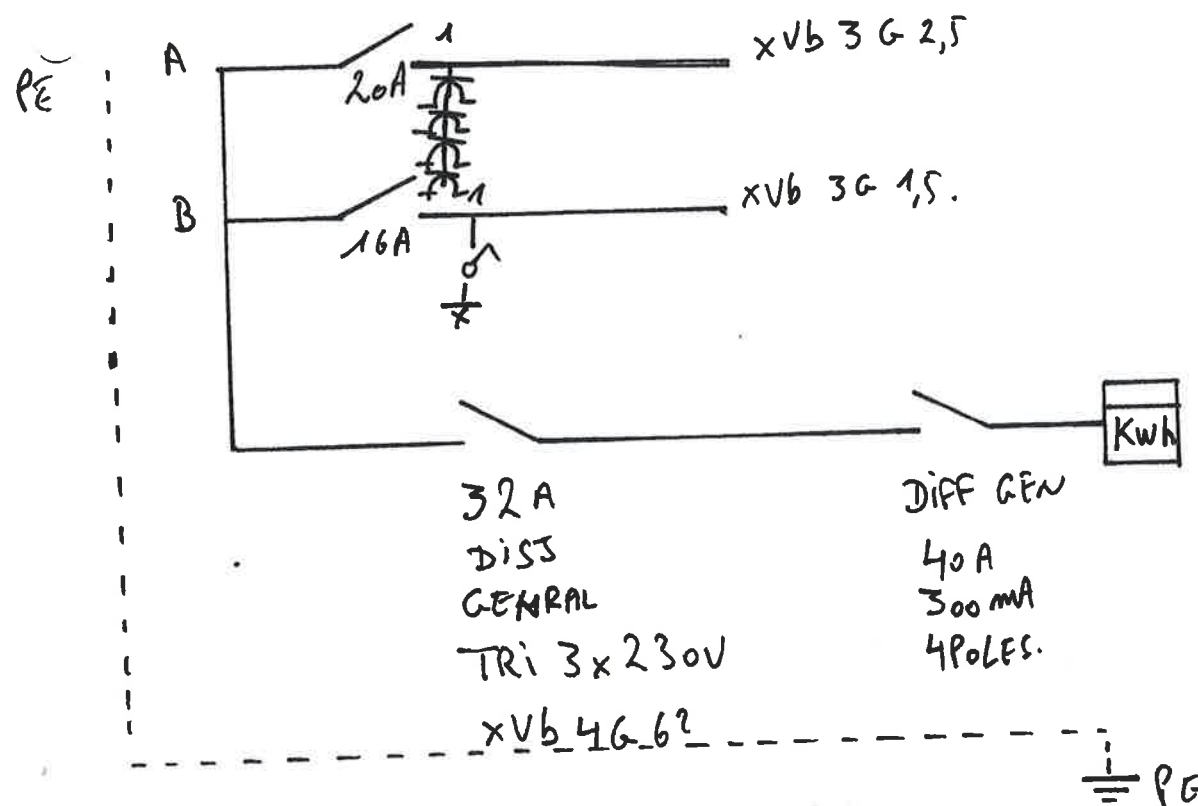 PE
A
1
20A
xVb 3 G 2,5
B
1
16A
xVb 3G 1,5.
Kwh
32 A
DiSJ
GENRAL
TRi 3 x 230V
xVb 4G 6²
DiFF GEN
40 A
300 mA
4POLES.
PE